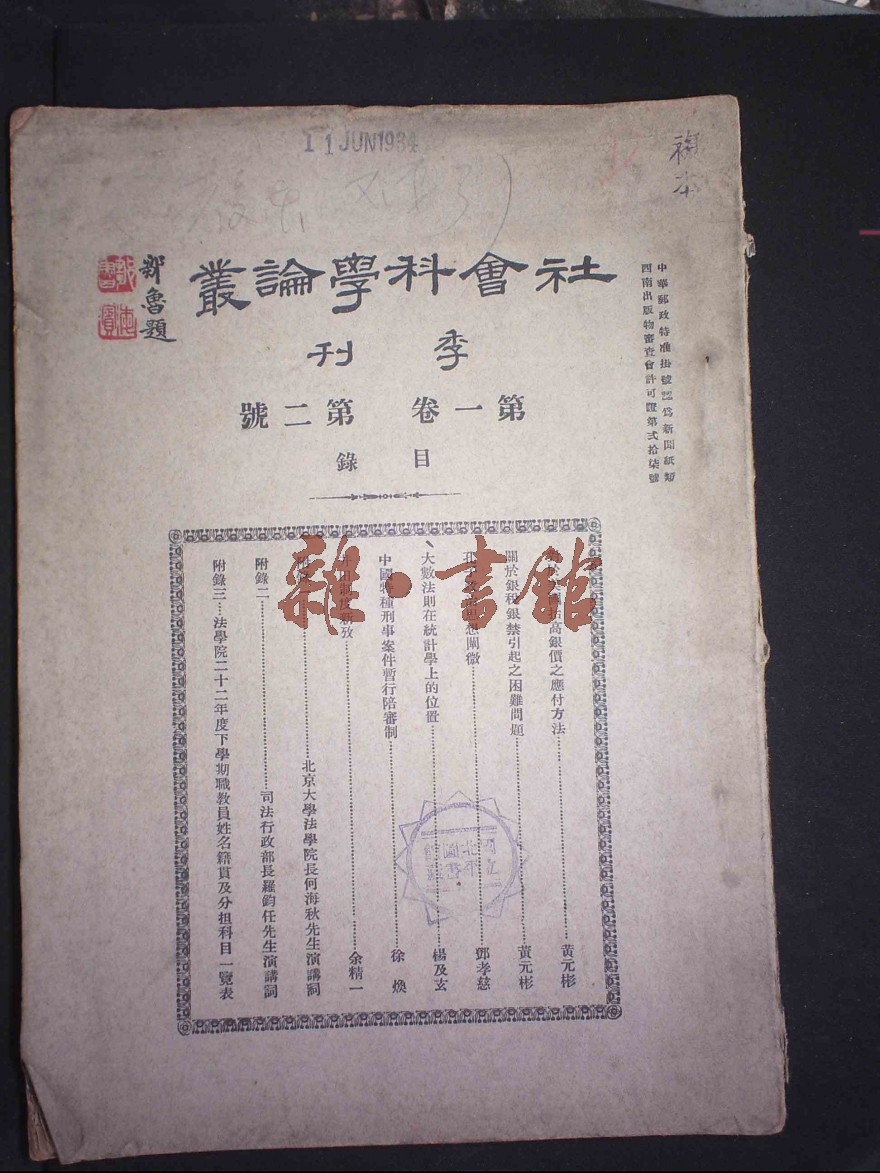 11 JUN 1934
複本
中華郵政特准掛號認爲新聞紙類
西南出版物審查會許可證第弍拾柒號
社會科學論叢
季刊
鄒魯題
第一卷 第二號
目錄
高銀價之應付方法……黃元彬
關於銀稅銀禁引起之困難問題……黃元彬
闡微……鄧孝慈
大數法則在統計學上的位置……楊及玄
中國特種刑事案件暫行陪審制……徐煥
井田制度新攷……余精一
附錄一……北京大學法學院長何海秋先生演講詞
附錄二……司法行政部長羅鈞任先生演講詞
附錄三…法學院二十二年度下學期職教員姓名籍貫及分担科目一覽表
雜·書館